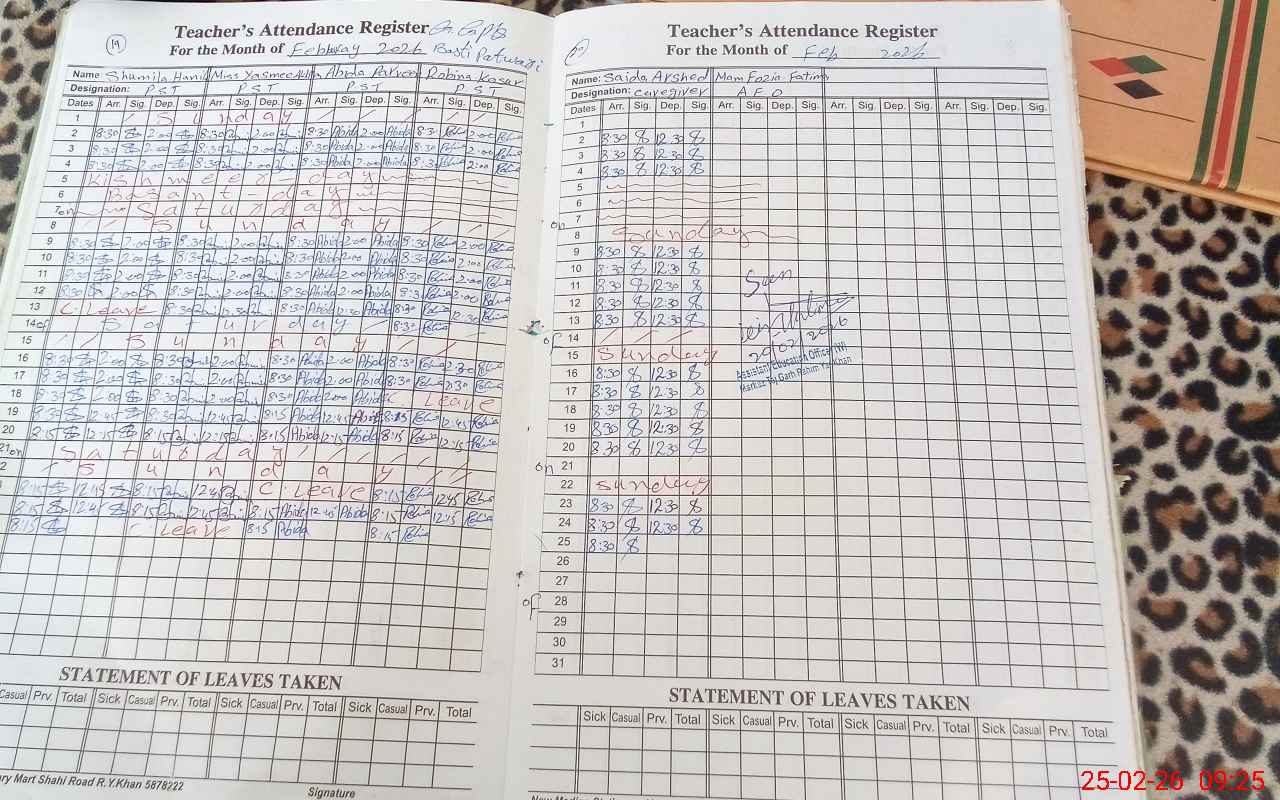 19
Teacher's Attendance Register
For the Month of February 2026 Basti Patwari
Name Shumila Hanif Miss Yasmeen Abida Parveen Robina Kosar
Designation: PST PST PST PST
Dates Arr. Sig. Dep. Sig. Arr. Sig. Dep. Sig. Arr. Sig. Dep. Sig. Arr. Sig. Dep. Sig.
1 Sunday
2 8:30 2:00 8:30 2:00 8:30 Abida 2:00 Abida 8:30 2:00
3 8:30 2:00 8:30 2:00 8:30 Abida 2:00 Abida 8:30 2:00
4 8:30 2:00 8:30 2:00 8:30 Abida 2:00 Abida 8:30 2:00
5 Kishmeer day
6 Basant day
7 on Saturday
8 Sunday
9 8:30 2:00 8:30 2:00 8:30 Abida 2:00 Abida 8:30 2:00
10 8:30 2:00 8:30 2:00 8:30 Abida 2:00 Abida 8:30 2:00
11 8:30 2:00 8:30 2:00 8:30 Abida 2:00 Abida 8:30 2:00
12 8:30 2:00 8:30 2:00 8:30 Abida 2:00 Abida 8:30 2:00
13 C. Leave 8:30 12:30 8:30 Abida 12:30 Abida 8:30 12:30
14 of Saturday 8:30
15 Sunday
16 8:30 2:00 8:30 2:00 8:30 Abida 2:00 Abida 8:30 2:30
17 8:30 2:00 8:30 2:00 8:30 Abida 2:00 Abida 8:30 2:30
18 8:30 2:00 8:30 2:00 8:30 Abida 2:00 Abida C. Leave
19 8:30 12:45 8:30 12:45 8:15 Abida 12:45 Abida 8:15 12:45
20 8:15 12:15 8:15 12:15 8:15 Abida 12:15 Abida 8:15 12:15
21 on Saturday
2 Sunday
8:15 12:45 8:15 12:45 C. Leave 8:15 12:45
8:15 12:45 8:15 12:45 8:15 Abida 12:45 Abida 8:15 12:45
8:15 C. Leave 8:15 Abida 8:15
STATEMENT OF LEAVES TAKEN
Casual Prv. Total Sick Casual Prv. Total Sick Casual Prv. Total Sick Casual Prv. Total
ry Mart Shahi Road R.Y.Khan 5878222
Signature
Teacher's Attendance Register
For the Month of Feb 2026
Name: Saida Arshed Mam Fozia Fatima
Designation: caregiver A E O
Dates Arr. Sig. Dep. Sig. Arr. Sig. Dep. Sig. Arr. Sig. Dep. Sig. Arr. Sig. Dep. Sig.
1
2 8:30 12:30
3 8:30 12:30
4 8:30 12:30
5
6
7
on
8 Sunday
9 8:30 12:30
10 8:30 12:30
11 8:30 12:30
12 8:30 12:30
13 8:30 12:30
of 14
15 Sunday
16 8:30 12:30
17 8:30 12:30
18 8:30 12:30
19 8:30 12:30
20 8:30 12:30
on 21
22 Sunday
23 8:30 12:30
24 8:30 12:30
25 8:30
26
27
of 28
29
30
31
Seen
Assistant Education Officer (W)
STATEMENT OF LEAVES TAKEN
Sick Casual Prv. Total Sick Casual Prv. Total Sick Casual Prv. Total Sick Casual Prv. Total
25-02-26 09:25